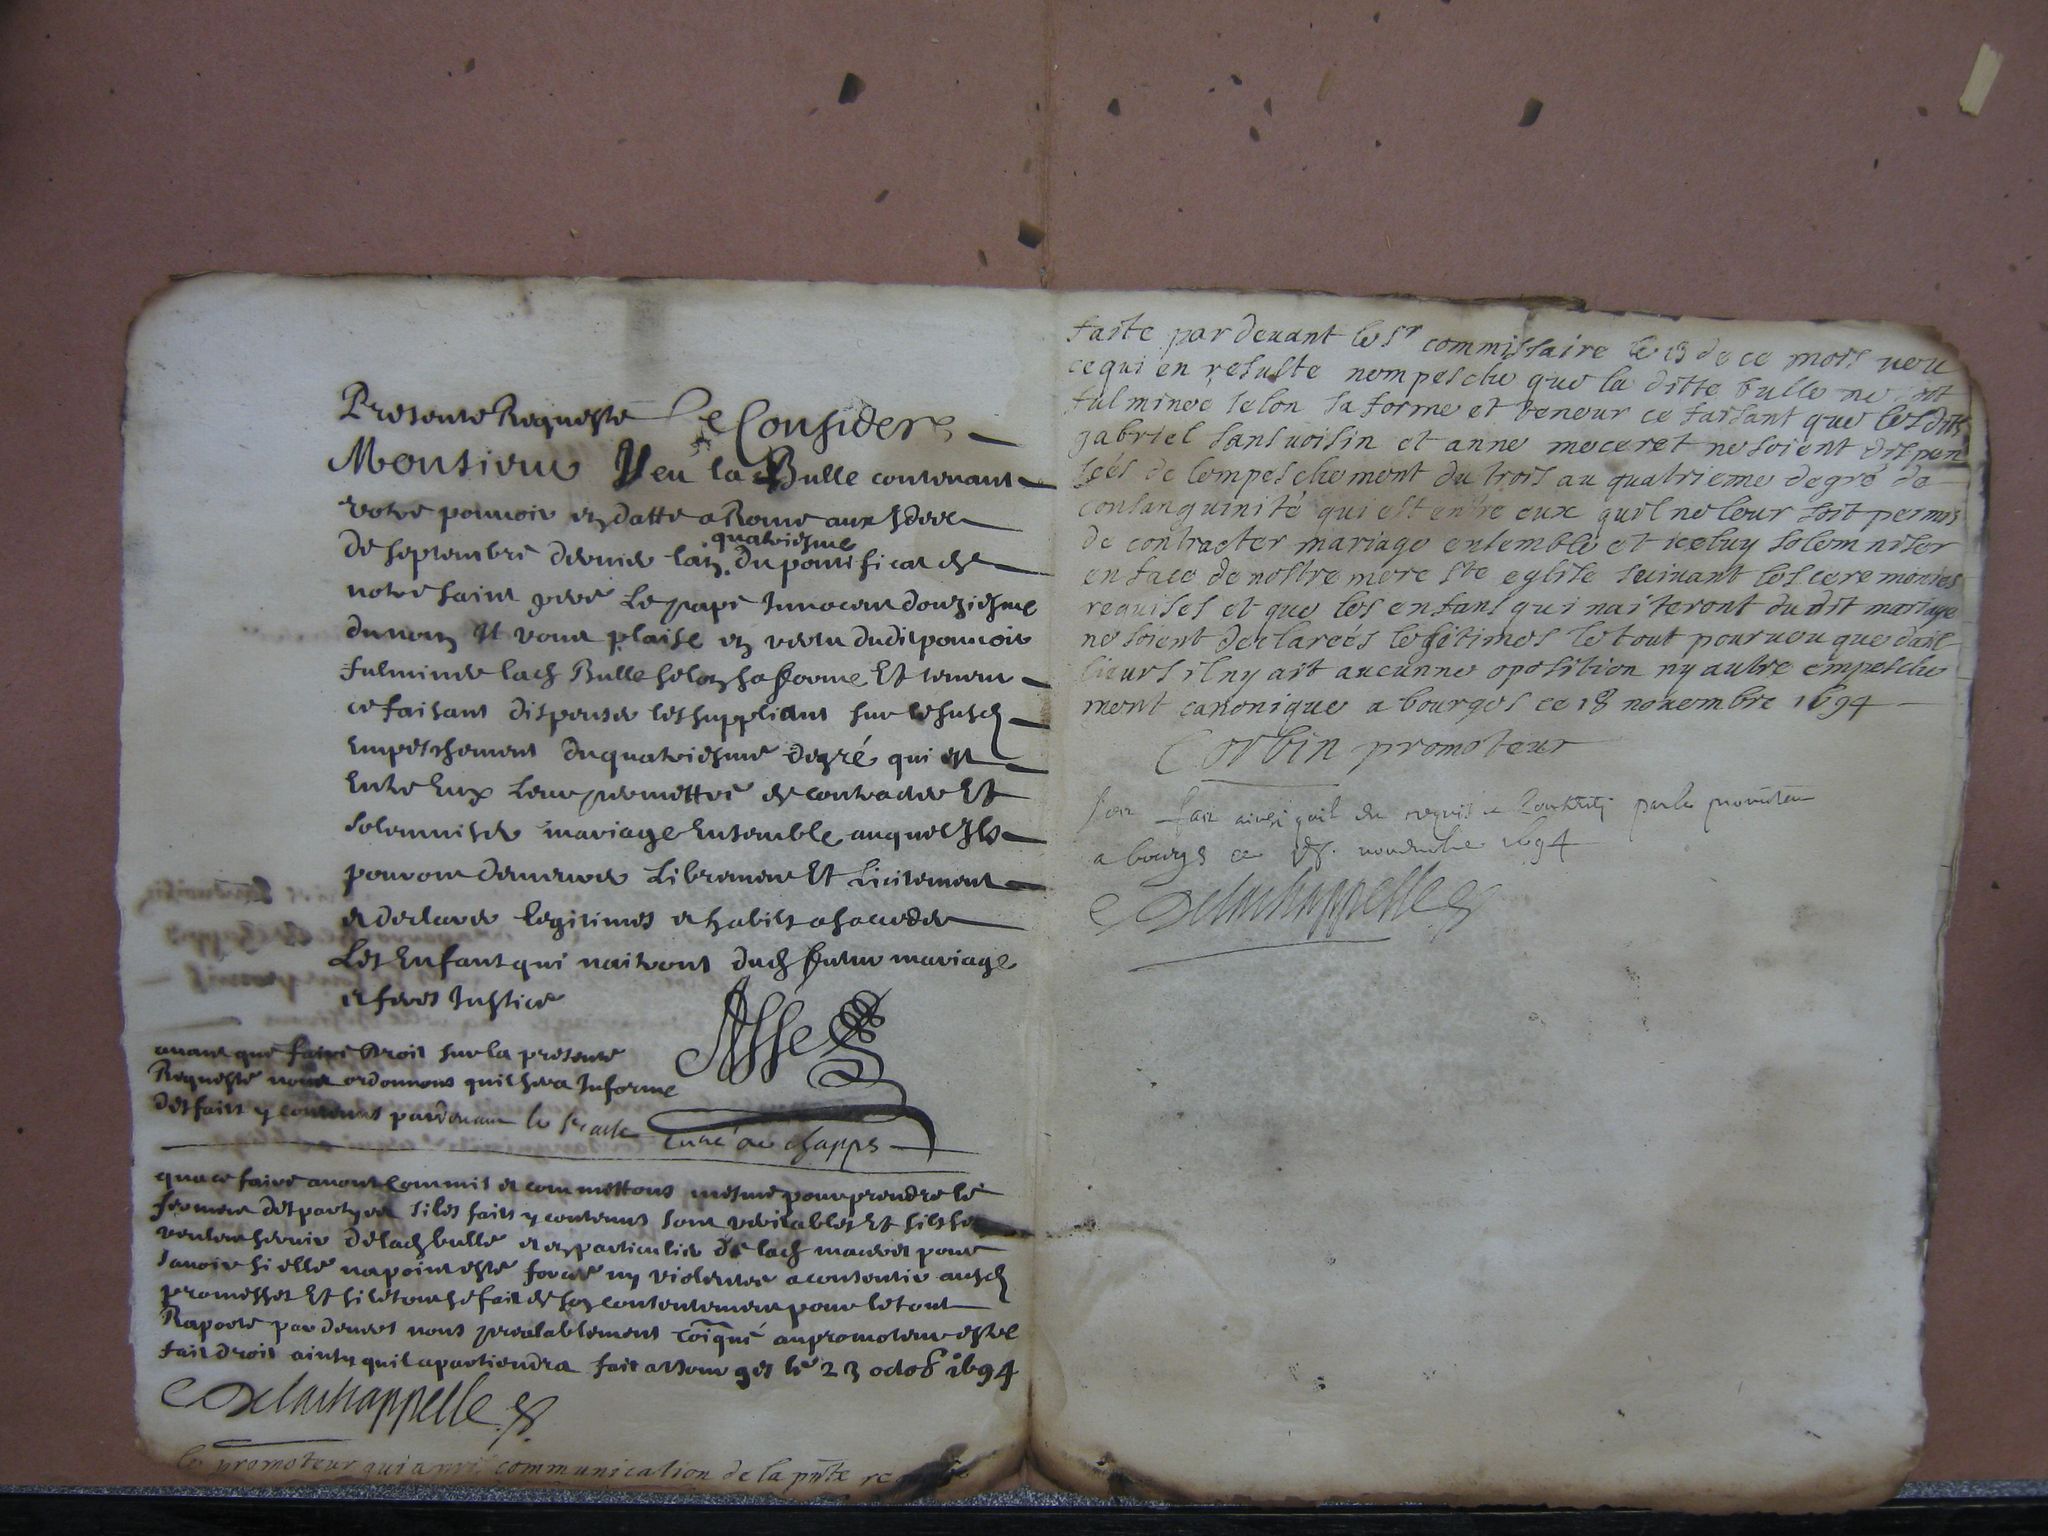 Presente Requeste Ce Consideré
Monsieur Veu la Bulle contenant
votre pouvoir en datte a Rome aux Ides
de septembre dernier lan quatriesme du pontificat de
notre saint pere Le pape Innocent douziesme
du nom Il vous plaise en vertu dudit pouvoir
fulminer lad Bulle selon sa forme Et teneur
ce faisant dispenser les suppliant sur le susd
empeschement du quatriesme degré qui est
Entre Eux Leur permettre de contracter Et
solemniser mariage Ensemble auquel Ils
pouront demeurer Librement Et Licitement
et declarer legitimes et habiles a succeder
Les Enfant qui naitront dud futur mariage
et feres Justice
avant que faire droit sur la presente
Requeste nous ordonnons quil sera Informe
des faits y contenus pardevant le Sr curé de chapps
qua ce faire avons Commis et commettons mesme pour prendre le
serment des partyes si les faits y contenus sont veritables Et sils se
veulent servir de lad bulle et en particulier de lad maceret pour
savoir si elle na point esté forcée ny violentée a consentir ausd
promesses Et si le tout se fait de son contentement pour le tout
Raporté par devers nous prealablement coiqué au promoteur estre
fait droit ainsy quil apartiendra fait a Bourges le 23 octob 1694
Delachappelle
le promoteur qui a pris communication de la pnte requeste
faite par devant le sr commissaire le 13 de ce mois veu
ce qui en resulte nempesche que la ditte bulle ne soit
fulminee selon sa forme et teneur ce faisant que les dits
gabriel sansuoisin et anne meceret ne soient dispen
sées de lempeschement du trois au quatrieme degré de
consanguinité qui est entre eux quil ne leur soit permis
de contracter mariage ensemble et iceluy solemniser
en face de nostre mere ste eglise suivant les ceremonies
requises et que les enfans qui naiteront du dit mariage
ne soient declareés legitimes le tout pourveu que dail
lieurs il ny ait aucunne oposition ny autre empesche
ment canonique a bourges ce 18 novembre 1694
Corbin promoteur
soit fait ainsi quil est requis par le promoteur
a bourges ce 18. novembre 1694
Delachappelle